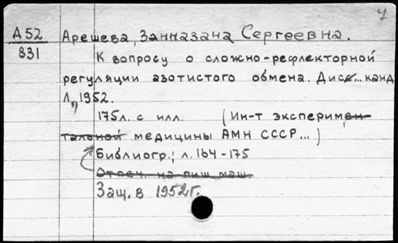 7
А52 Арешева, Занназана Сергеевна.
831 К вопросу о сложно-рефлекторной
регуляции азотистого обмена. Дисс... канд
Л., 1952.
175л. с илл. (Ин-т эксперимен-
тальной медицины АМН СССР...)
Библиогр.: л. 164-175
Отсеч. на пиш. маш.
Защ. в 1952г.